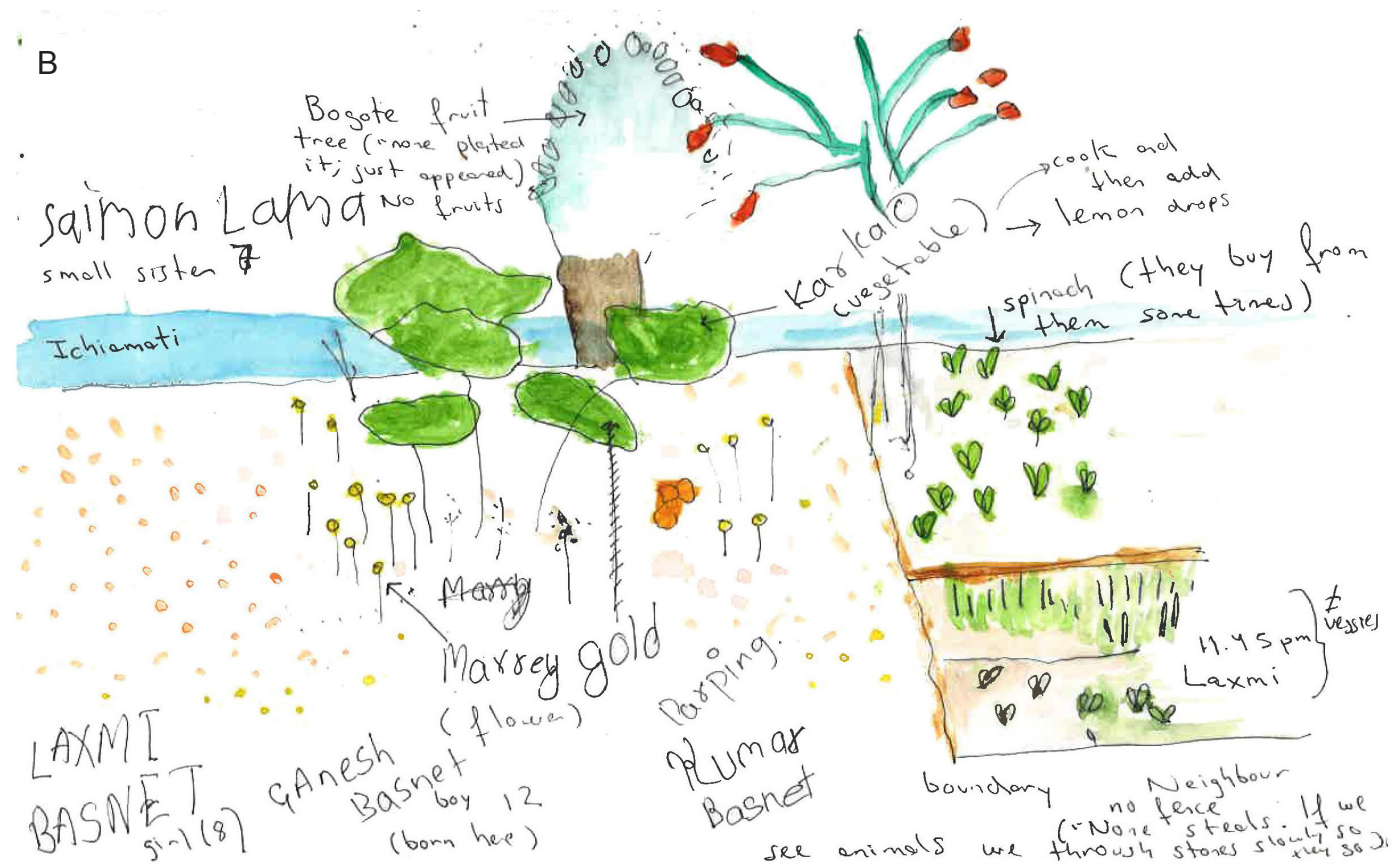 B
Bogote fruit
tree (none plated
it; just appeared)
No fruits
Saimon Lama
small sister 7
Ichiamati
Karkalo
(vegetable)
cook ad
then add
lemon drops
spinach (they buy from
them some times)
Marry
Marrey gold
(flower)
Parping.
LAXMI
BASNET
girl (8)
GAnesh
Basnet
boy 12
(born here)
Kumar
Basnet
11.45 pm
Laxmi
veggies
boundary
Neighbour
no fence
("None steals. If we
see animals we through stones slowly so
they go)